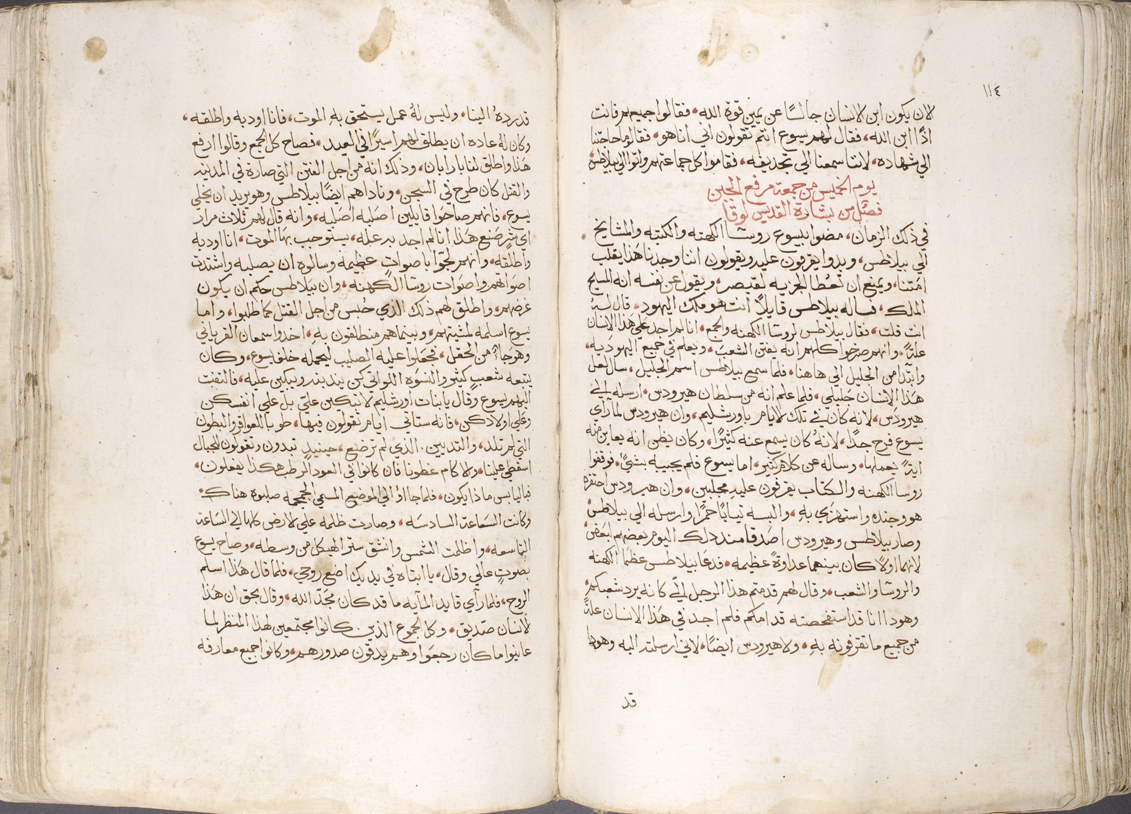 ١١٤
لان يكون ابن الانسان جالسًا عن يمين قوة الله، فقالوا جميعهم فانت
اذًا ابن الله، فقال لهم يسوع انتم تقولون اني انا هو، فقالوا ما حاجتنا
الي شهادة، لاننا سمعنا الي تجديفه، فقاموا كل جماعتهم واتوا الي بيلاطس
يوم الخميس من جمعة مرفع الجبن
فصل من بشارة القديس لوقا
في ذلك الزمان، مضوا بيسوع روسا الكهنه والكتبه والمشايخ
الي بيلاطس، وبدوا يقرفون عليه ويقولون اننا وجدنا هذا يقلب
امتنا، ويمنع ان تُعطا الجزيه لقيصر، ويقول عن نفسه انه المسيح
الملك، فساله بيلاطس قايلاً انت هو ملك اليهود، قال له
انت قلت، فقال بيلاطس لروسا الكهنه والجمع، انا لم اجد علي هذا الانسان
علةً، وانهم صرخوا كلهم انه يفتن الشعب، ويعلم في جميع اليهوديه،
وابتدا من الجليل الي هاهنا، فلما سمع بيلاطس اسم الجليل، سال لعل
هذا الانسان جليلي، فلما علم انه من سلطان هيرودس، ارسله الي
هيرودس، لانه كان في تلك الايام باورشليم، وان هيرودس لما راي
يسوع فرح جدًا، لانه كان يسمع عنه كثيرًا، وكان يظن انه يعاين منه
ايةً يعملها، وساله عن كلام كثير، اما يسوع فلم يجيبه بشيٍ، فوقفوا
روسا الكهنه والكتاب يقرفون عليه مجلبين، وان هيرودس احتقره
هو وجنده واستهزي به، والبسه ثيابًا حمرًا وارسله الي بيلاطس
وصار بيلاطس وهيرودس اصدقا منذ ذلك اليوم بعضهم لبعض
لانهما اولاً كان بينهما عداوةً عظيمه، فدعا بيلاطس عظما الكهنه
والروسا والشعب، وقال لهم قدمتم هذا الرجل الي كانه يرد شعبكم
وهودا انا قد استفحصته قدامكم فلم اجد في هذا الانسان علةً
من جميع ما تقرفونه به، ولا هيرودس ايضًا، لاني ارسلته اليه وهودا
قد
قد رده الينا، وليس له عمل يستحق به الموت، فانا اودبه واطلقه،
وكان له عاده ان يطلق لهم اسيرًا في العيد، فصاح كل الجمع وقالوا ارفع
هذا واطلق لنا بارابان، وذلك انه من اجل الفتن التي صارة في المدينه
والقتل كان طرح في السجن، وناداهم ايضًا بيلاطس وهو يريد ان يخلي
يسوع، فانهم صاحوا قايلين اصلبه اصلبه، وانه قال لهم ثلاث مرار
اي شرٍ صنع هذا انا لم اجد به عله، يستوجب بها الموت، انا اودبه
واطلقه، وانهم لجوا باصوات عظيمه وسالوه ان يصلبه واشتدت
اصواتهم واصوات روسا الكهنه، وان بيلاطس حكم ان يكون
غرضهم، واطلق لهم ذلك الذي حبس من اجل القتل كما طلبوا، واما
يسوع اسلمه لمشيتهم، وبينما هم منطلقون به، اخدوا سمعان القرياني
وهو جاءٍ من الحقل، فحملوا عليه الصليب ليحمله خلف يسوع، وكان
يتبعه شعب كثير والنسوه اللواتي كن يندبنه ويبكين عليه، فالتفت
اليهم يسوع وقال يا بنات اورشليم لا تبكين علي، بل علي انفسكن
وعلي اولادكن، فانه ستاتي ايام تقولون فيها، طوبا للعواقر والبطون
التي لم تلد، والثديين الذي لم ترضع، حينيد تبدون وتقولون للجبال
اسقطي علينا، والاكام غطونا فان كانوا في العود الرطب هكذا يفعلون،
فباليابس ماذا يكون، فلما جااوا الي الموضع المسمي الجمجمه صلبوه هناك،
وكانت الساعة السادسه، وصارت ظلمه علي الارض كلها الي الساعة
التاسعه، واظلمت الشمس وانشق ستر الهيكل من وسطه، وصاح يسوع
بصوتٍ عالي وقال، يا ابتاه في يديك اضع روحي، فلما قال هذا اسلم
الروح، فلما راي قايد المايه ما قد كان مجّد الله، وقال بحق ان هذا
الانسان صديق، وكل الجموع الذين كانوا مجتمعين لهذا المنظر لما
عاينوا ما كان رجعوا وهم يدقون صدورهم، وكانوا جميع معارفه